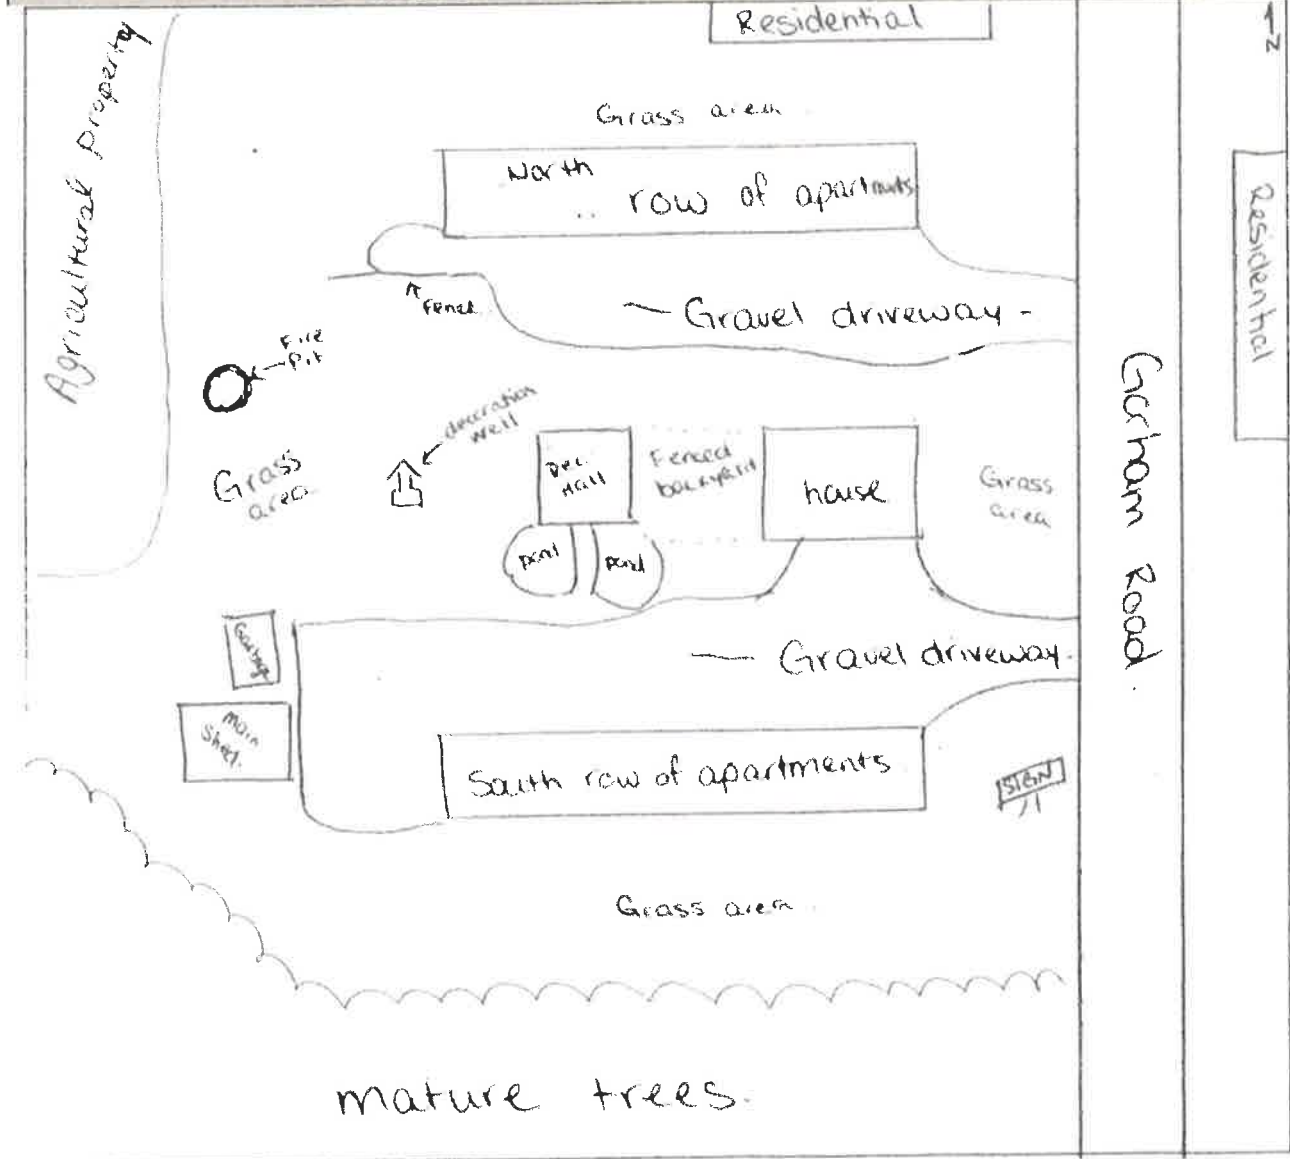 Residential
N
Agricultural Property
Grass area
North
row of apartments
Residential
Fence
Gravel driveway
Fire
Pit
decoration
well
Grass
area
Rec.
Hall
Fenced
backyard
house
Grass
area
Gorham Road
pond
pond
Garbage
Gravel driveway
main
Shed.
South row of apartments
SIGN
Grass area
mature trees.